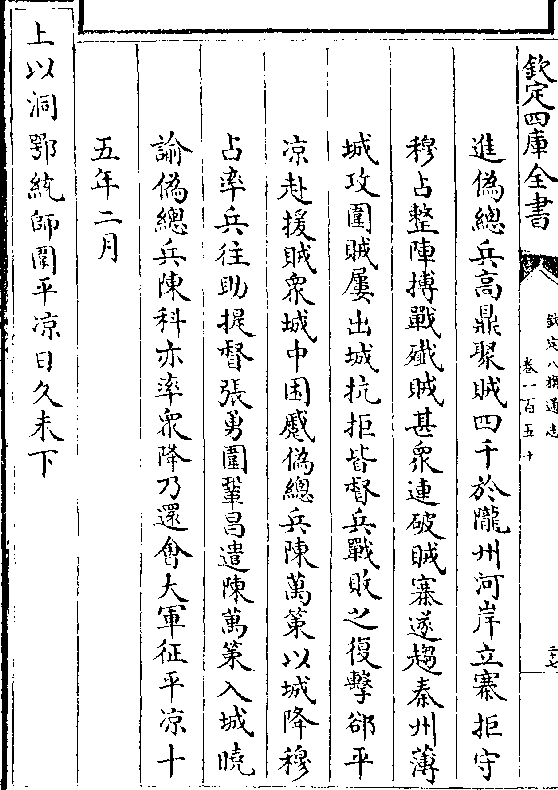 欽定四庫全書
欽定八旗通志
卷一百五十
二七
進偽總兵高鼎聚賊四千於隴州河岸立寨拒守
穆占整陣搏戰殲賊甚衆連破賊寨遂趨秦州薄
城攻圍賊屢出城抗拒皆督兵戰敗之復擊郤平
凉赴援賊衆城中困蹙偽總兵陳萬策以城降穆
占率兵往助提督張勇圍鞏昌遣陳萬策入城曉
諭偽總兵陳科亦率衆降乃還會大軍征平凉十
五年二月
上以洞鄂統師圍平凉日久未下